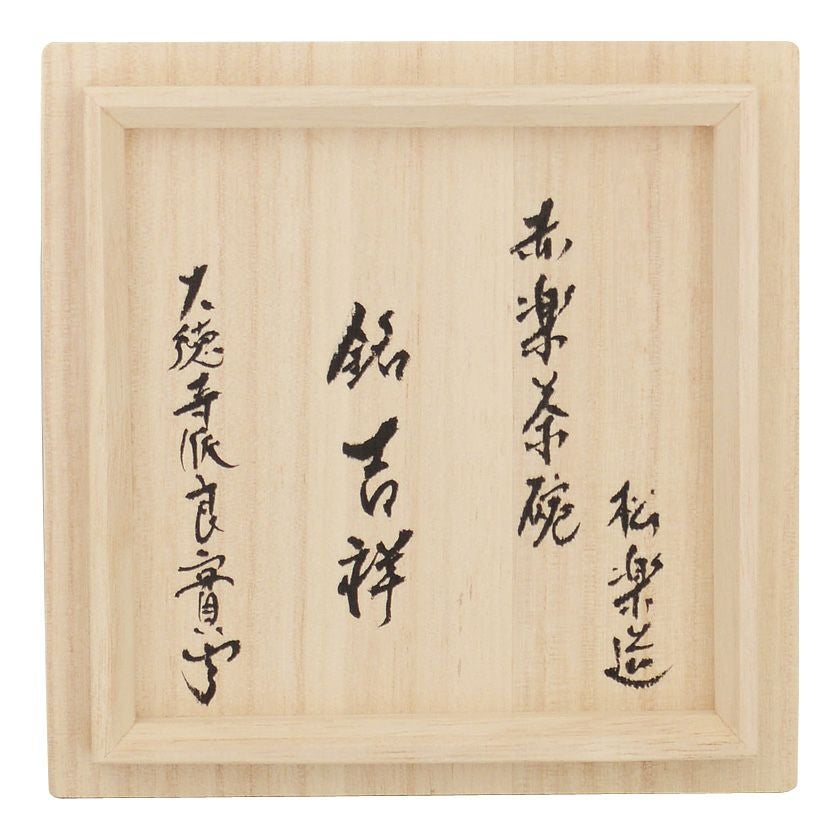 松楽造
赤楽茶碗
銘吉祥
大徳寺派良實